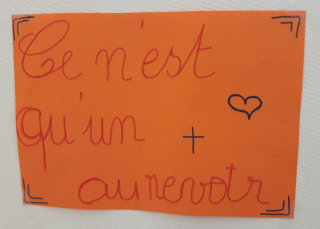 Ce n'est
qu'un +
aurevoir